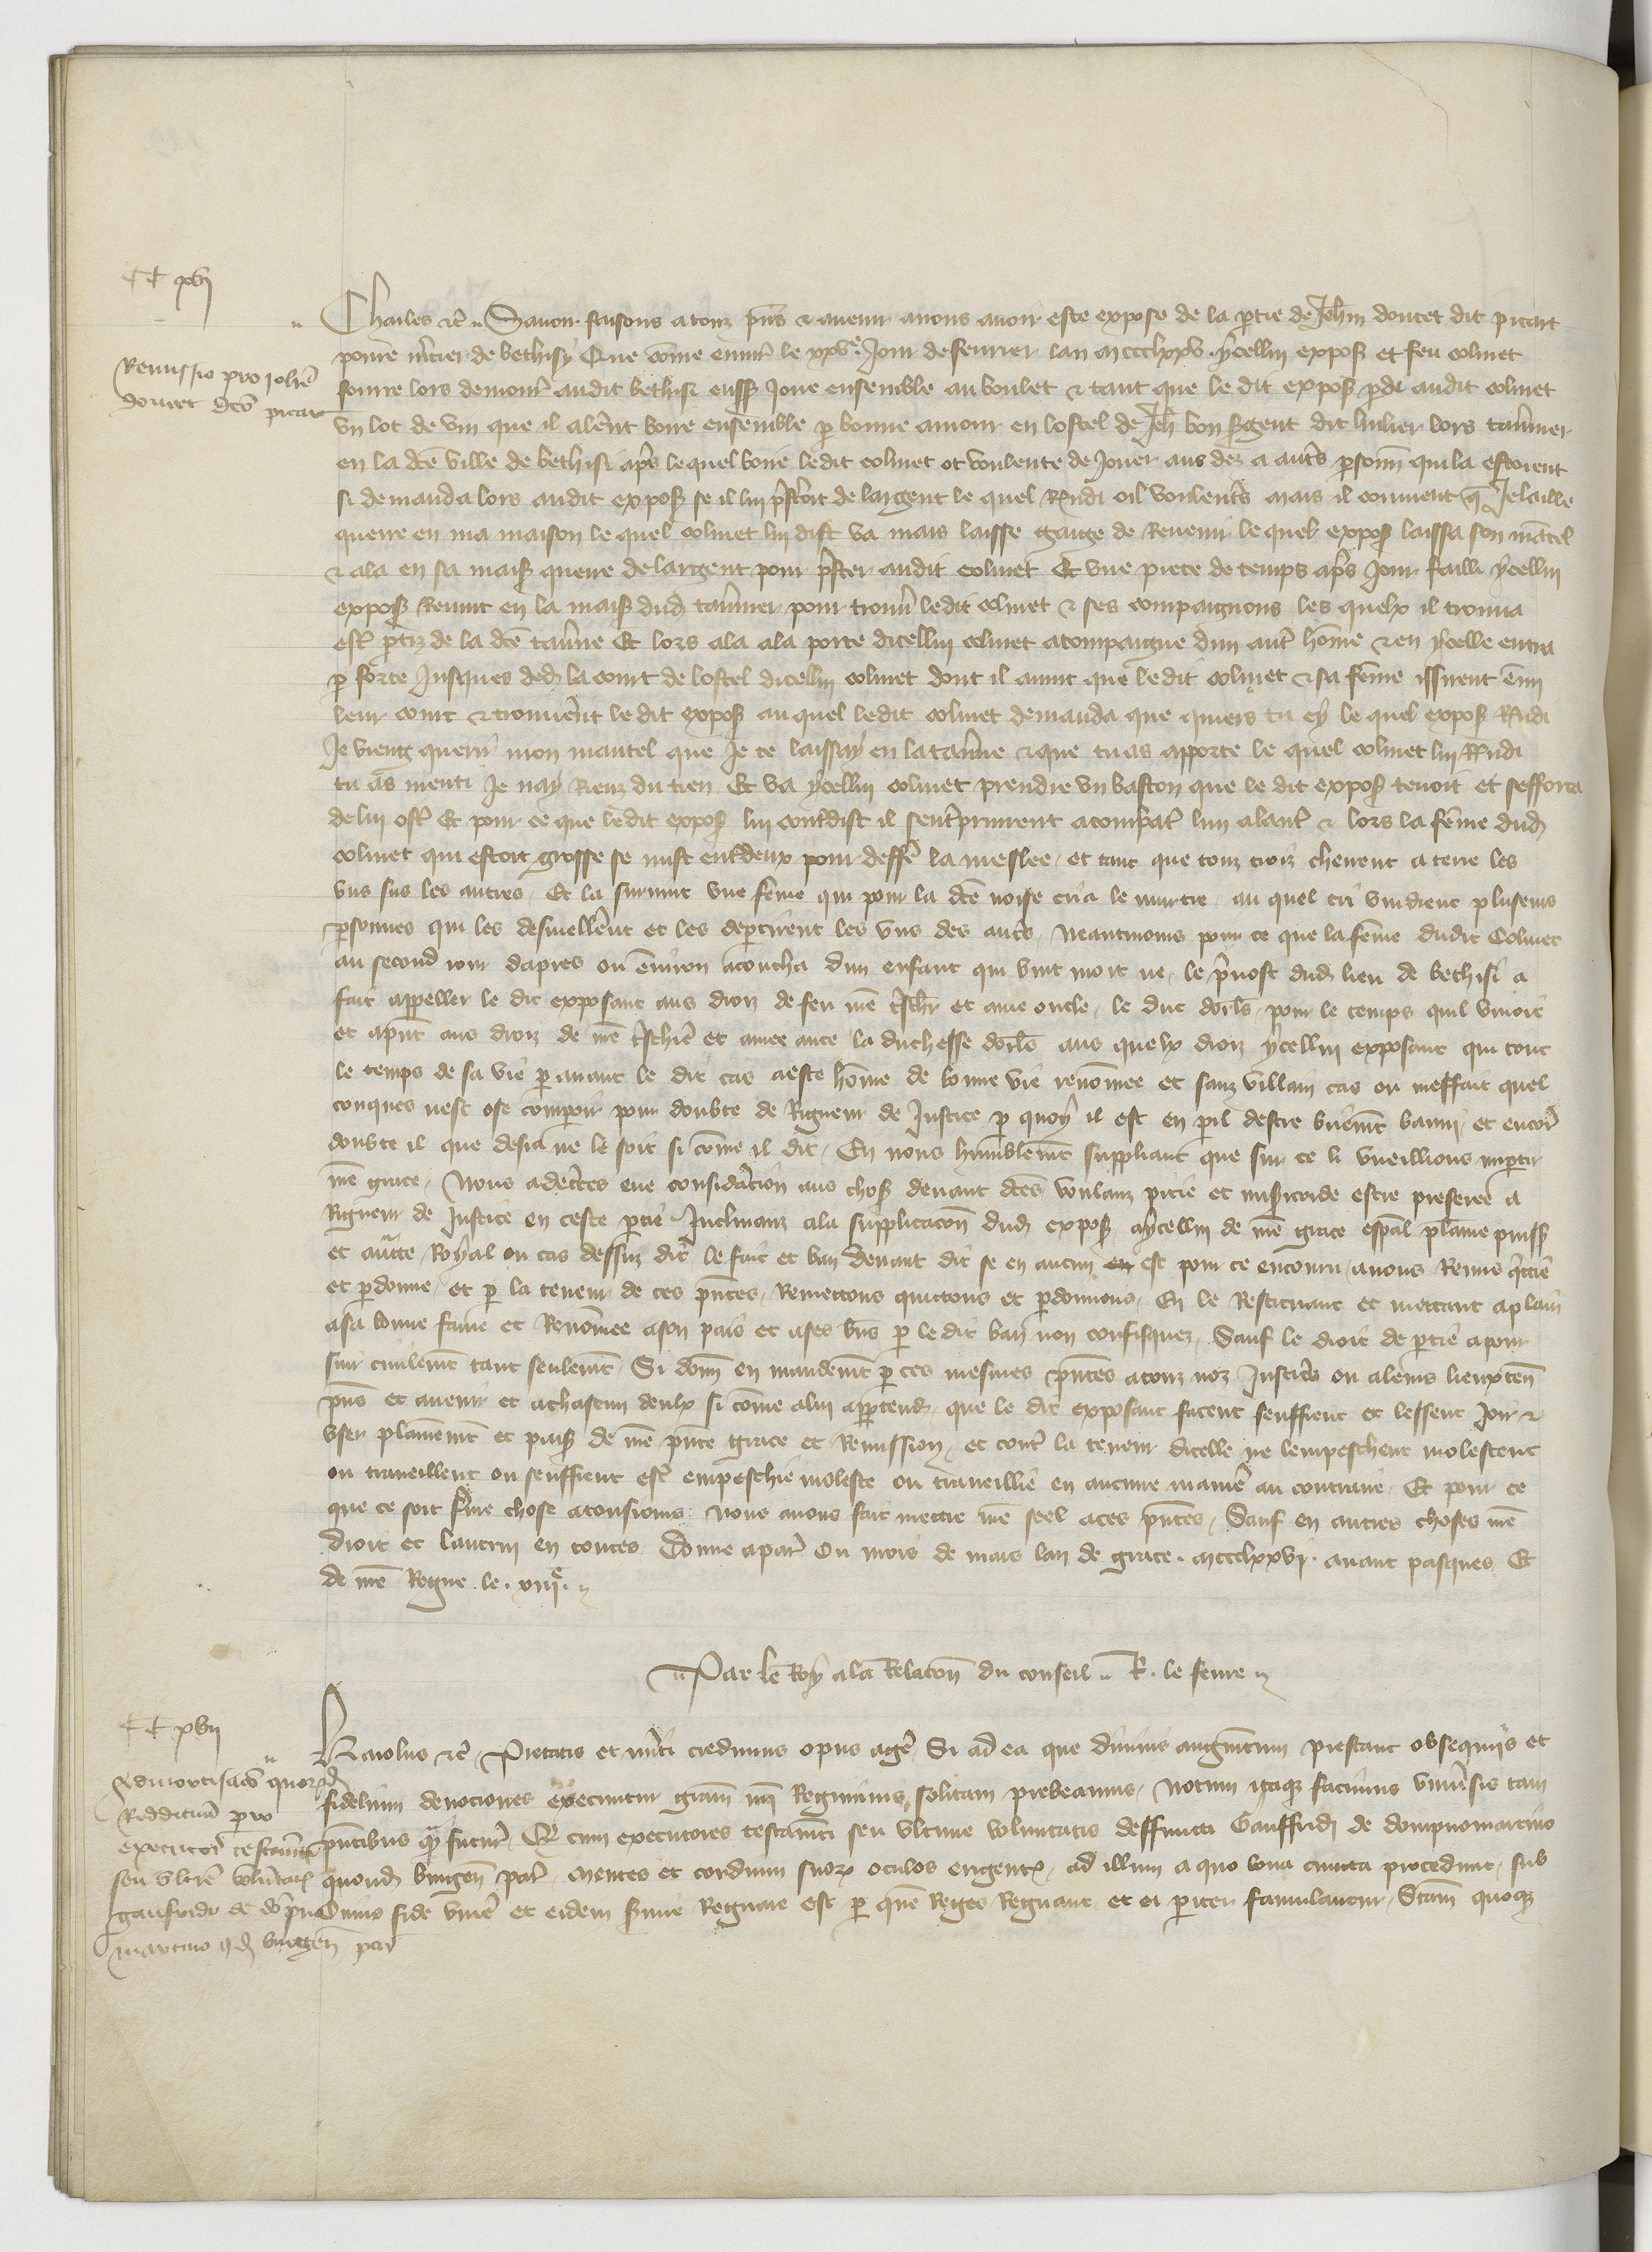 CC xvj
Remissio pro Johē
doucet dcō picar
Charles &c̃ Savoir faisons a touz p̃ns & avenir avons avoir este expose de la p̃tie de Jehan doucet dit picart
povre m̃cier de bethisy Que cõme environ le xxve. Jour de fevrier lan mccclxxv. ycellui expoß et feu colinet
lors demour̃ audit bethisi eusß Joue ensemble au boulet & tant que le dit expoß p̃di audit colinet
un lot de vin que il aler̃nt boire ensemble p bonne amour en lostel de Jeh̃ bon lors taṽnier
en la dc̃e ville de bethisi ap̃s lequel boire ledit colinet ot voulente de Jouer aus dez a aut̃s p̃sonn̄ qui la estoient
si demanda lors audit expoß se il lui p̃steroit de largent le quel Rñdi oil voulent̃s mais il convient q̃ Je laille
querre en ma maison le quel colinet lui dist va mais laisse gaige de Revenir le quel expoß laissa son mãtel
& ala en sa maisß querre de largent pour p̃ster audit colinet Et une piece de temps ap̃s Jour failli ycellui
expoß Revint en la maisß dud taṽnier pour trouṽ ledit colinet & ses compaignons les quelx il trouva
est̃ p̃tiz de la dc̃e taṽne Et lors ala a la porte dicellui colinet acompaigne dun aut̃ hõme & en ycelle entra
p force Jusques dedẽ la court de lostel dicellui colinet dont il avint que ledit colinet & sa fẽme issirent em̃mi
leur court & trouver̃nt le dit expoß au quel ledit colinet demanda que quiers tu cy le quel expoß Rñdi
Je vieng querir mon mantel que Je te laissay en la taṽne & que tu as apporte le quel colinet lui Rñdi
tu as menti Je nay Riens du tien Et va ycellui colinet prendre un baston que le dit expoß tenoit et sefforca
de lui ost̃ Et pour ce que ledit expoß lui contredist il sent̃prinrent a combat̃ lun alaut̃ & lors la fẽme dud
colinet qui estoit grosse se mist ent̃deux pour deff̃e la meslee et tant que touz trois cheirent a terre les
uns sus les autres Et la survint une fẽme qui pour la dc̃e noise cria le murtre au quel cri vindrent pluseurs
p̃sonnes qui les desmellerẽnt et les departirent les uns des aut̃s Neantmoins pour ce que la fẽme dudit Colinet
au second jour dapres ou environ acoucha dun enfant qui vint mort ne le p̃vost dud lieu de bethisi a
fait appeller le dit exposant aus droiz de feu nr̃e t̃schr̃ et ame oncle le duc dorl̃s pour le temps quil vivoit
et ap̃nt aus droiz de nr̃e t̃schiẽ et amee ante la duchesse dorl̃s aus quelx droiz ycellui exposant qui tout
le temps de sa vie p avant le dit cas a este hõme de bonne vie renõmee et sanz villain cas ou meffait quel
conques nest ose comparoir pour doubte de Rigueur de Justice p quoy il est en peril destre briefmẽt banni et encor̃
doubte il que desia ne le soit si cõme il dit En nous humblemẽt suppliant que sur ce li vueillions impartir
nr̃e grace Nous adecertes eue considẽracion aus choß devant dc̃es voulanz pitie et misericorde estre preferee a
Rigueur de Justice en ceste p̃tie Inclinanz ala supplicacõn dud expoß aycellui de nr̃e grace esp̃al plaine puissß
et auct̃te Royal ou cas dessuz dit le fait et ban devant dit se en aucun est pour ce encouru avons Remis q̃ttie
et p̃donne et p la teneur de ces p̃ntes Remettons quittons et p̃donnons En le Restituant et mettant aplain
asa bonne fame et Renõmee ason pais et ases b̃ns p le dit ban non confisquez Sauf le droit de p̃tie apour
suir civilemẽt tant seulemẽt Si donn̄ en mandemẽt p ces mesmes p̃ntes a touz noz Justic̃s ou aleurs lieuxten̄
p̃ns et avenir et achascun deulx si cõme alui app̃tendr̃ que le dit exposant facent seuffrent et lessent Joir &
user plainẽmẽt et paisß de nr̃e p̃nte grace et Remission et cont̃ la teneur dicelle ne lempeschent molestent
ou traveillent ou seuffrent est̃ empeschie moleste ou traveillie en aucune manier̃e au contraire Et pour ce
que ce soit ferme chose atousiours Nous avons fait mettre nr̃e seel aces p̃ntes Sauf en autres choses nr̃e
droit et lautrui en toutes Donne apar̃ Ou mois de mars lan de grace. mccclxxvj. avant pasques Et
de nr̃e Regne le. xiije.
Par le Roy ala Relacõn du conseil R. le fevre
CC xvij
Admortisacõ quord̃
Reddituũ pro
executor̃ testamẽti
seu ultie volũtat̃
gaufridi de dõpno
martino qd burgen̄ par̃
Karolus &c̃ Pietatis et m̃iti credimus opus ager̃ Si ad ea que divinis augmentum prestant obsequiis et
fidelium devociones exercentur gram̃ nr̃i Regiminis solitam prebeamus Notum itaqȝ facimus uniṽsis tam
p̃ntibus qȝ futur̃ Qd̃ cum executores testam̃ti seu ultime voluntatis deffuncti Gauffridi de dompnomartino
quondã burgen̄ par̃ mentes et cordium suorꝝ oculos erigentes ad illum a quo bona cuncta procedunt sub
Cuius fide viver̃ et eidem servire Regnare est p quẽ Reges Regnant et ei pariter famulantur Statm̃ quoqȝ